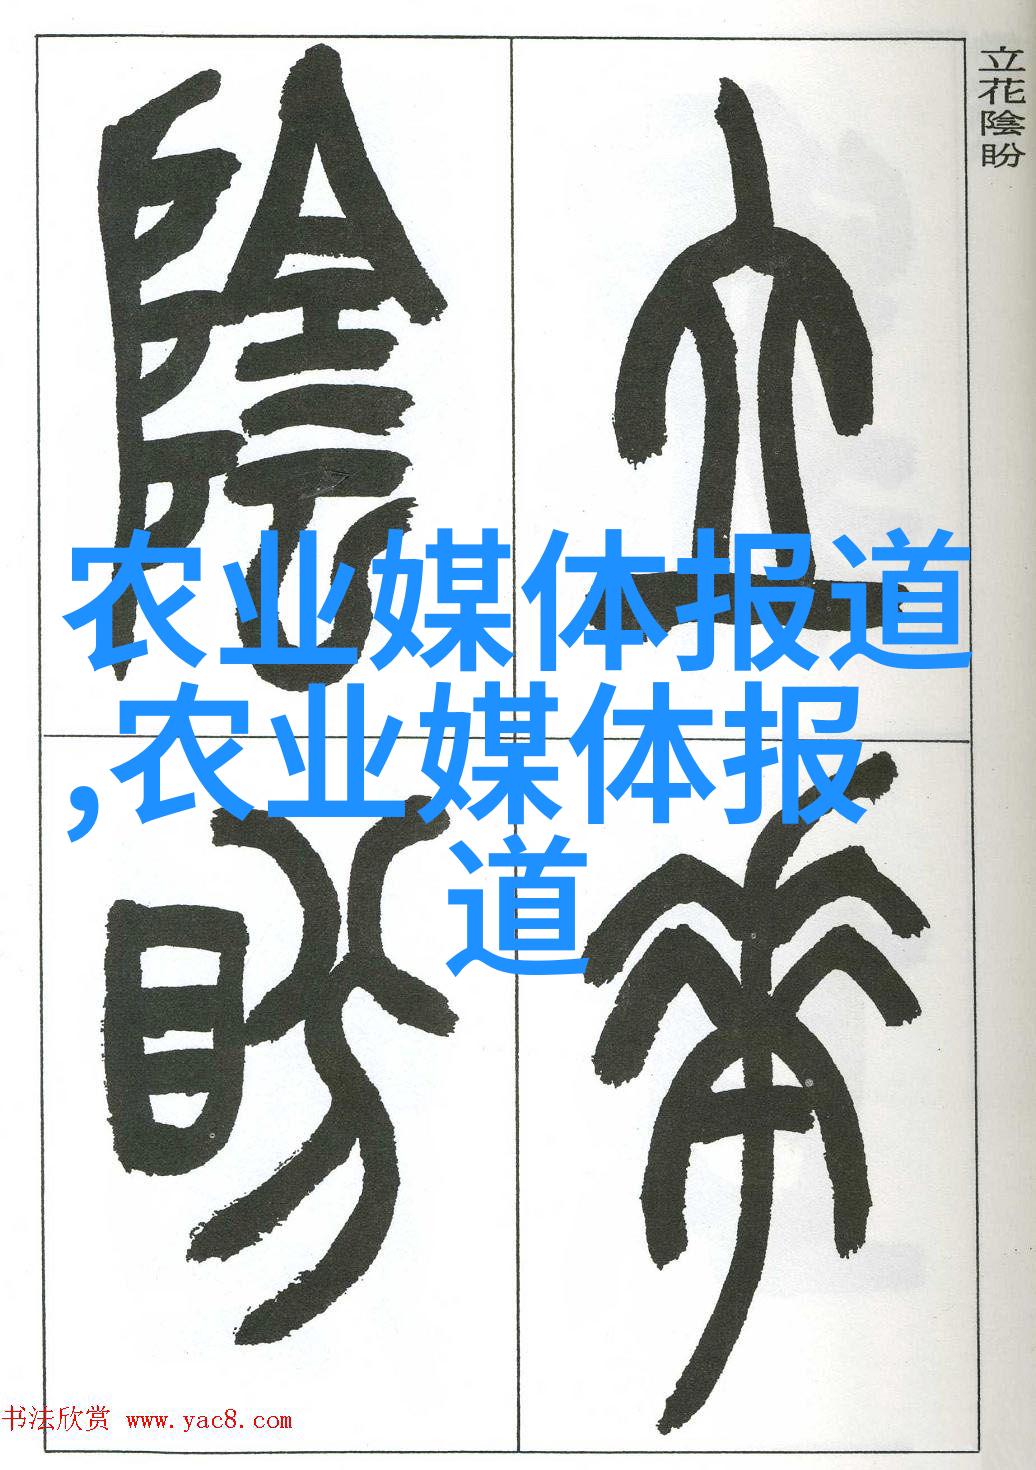 立花陰盼
立
花
陰
盼
农业媒体报道
,农业媒体报
道
书法欣赏 www.yac8.com